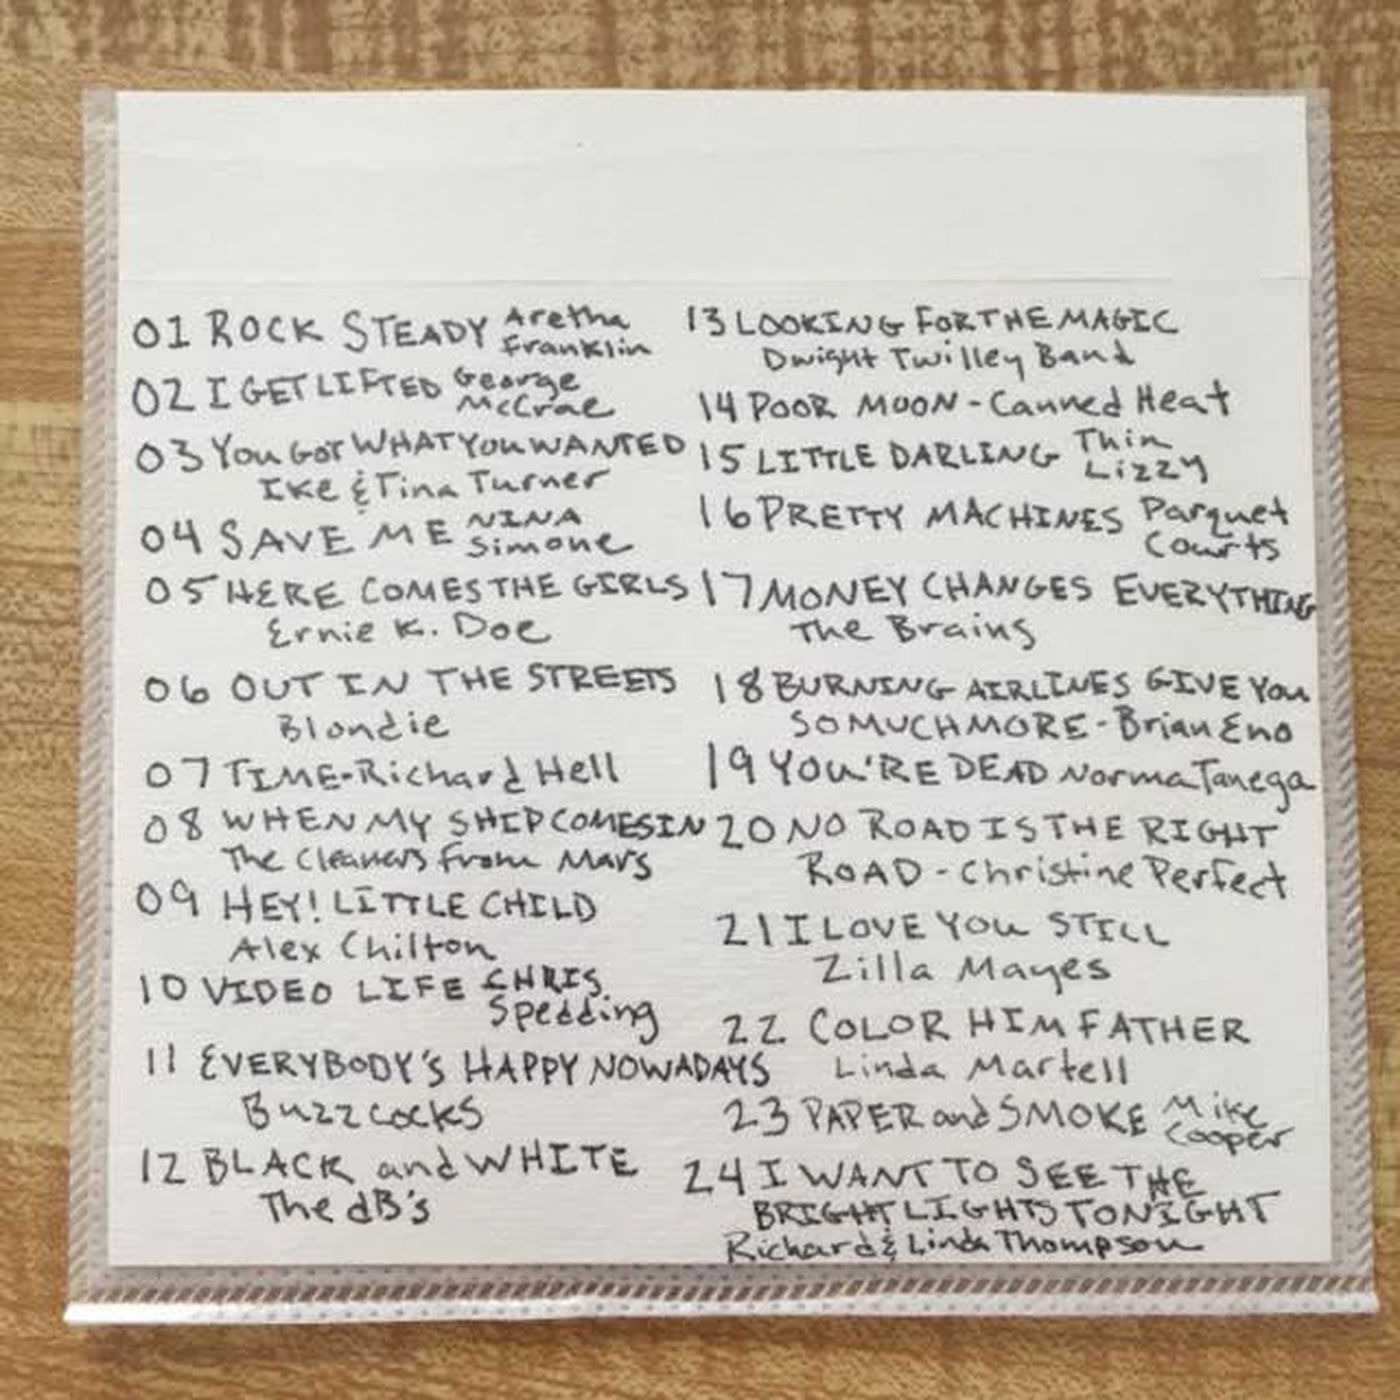 01 ROCK STEADY Aretha
Franklin
02 I GET LIFTED George
McCrae
03 You GOT WHAT YOU WANTED
Ike & Tina Turner
04 SAVE ME NINA
Simone
05 HERE COMES THE GIRLS
Ernie K. Doe
06 OUT IN THE STREETS
Blondie
07 TIME-Richard Hell
08 WHEN MY SHIP COMES IN
The Cleaners from Mars
09 HEY! LITTLE CHILD
Alex Chilton
10 VIDEO LIFE CHRIS
Spedding
11 EVERYBODY'S HAPPY NOWADAYS
Buzzcocks
12 BLACK and WHITE
The dB's
13 LOOKING FOR THE MAGIC
Dwight Twilley Band
14 POOR MOON - Canned Heat
15 LITTLE DARLING Thin
Lizzy
16 PRETTY MACHINES Parquet
Courts
17 MONEY CHANGES EVERYTHING
The Brains
18 BURNING AIRLINES GIVE You
SO MUCH MORE - Brian Eno
19 YOU'RE DEAD Norma Tanega
20 NO ROAD IS THE RIGHT
ROAD - Christine Perfect
21 I LOVE YOU STILL
Zilla Mayes
22 COLOR HIM FATHER
Linda Martell
23 PAPER and SMOKE Mike
Cooper
24 I WANT TO SEE THE
BRIGHT LIGHTS TONIGHT
Richard & Linda Thompson